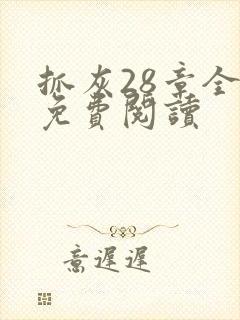 抓灰28章全
免費閱讀
意遲遲